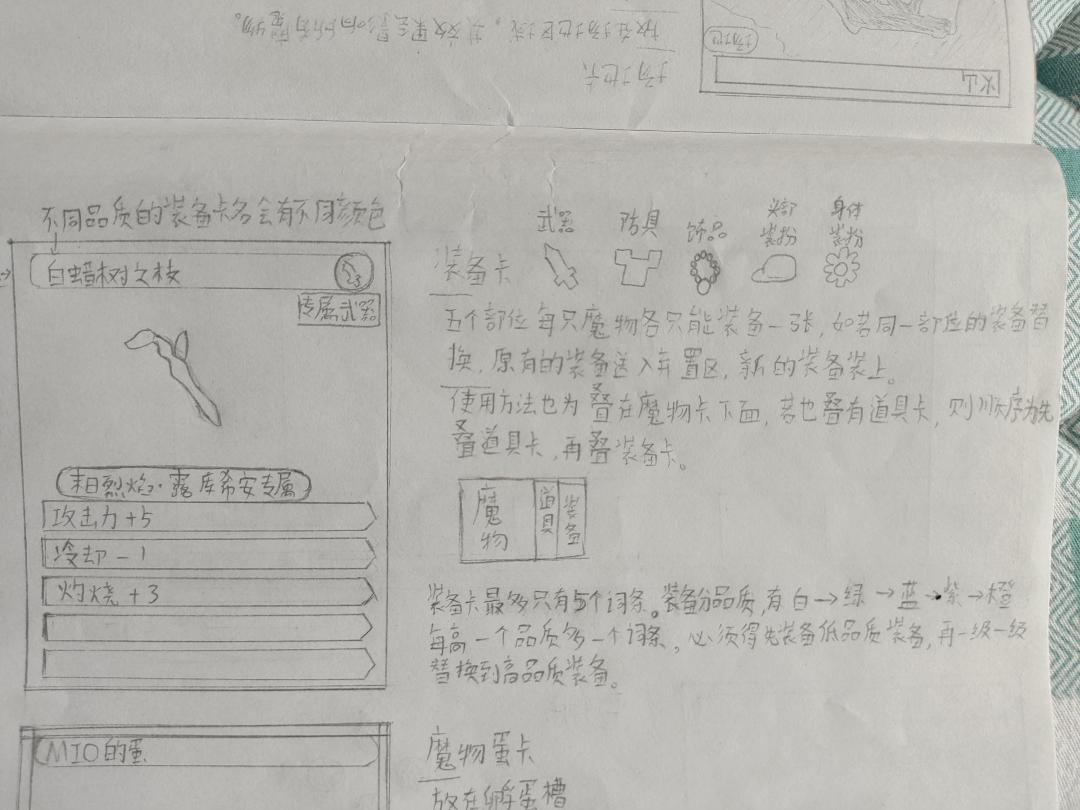 火山
场地
场地卡
放在场地区域，其效果会影响所有魔物。
不同品质的装备卡名会有不同颜色
白蜡树之枝
专属武器
末日烈焰·露库希安专属
攻击力+5
冷却-1
灼烧+3
武器 防具 饰品 头部装扮 身体装扮
装备卡
五个部位每只魔物各只能装备一张，如若同一部位的装备替
换，原有的装备送入弃置区，新的装备装上。
使用方法也为叠在魔物卡下面，若也叠有道具卡，则顺序为先
叠道具卡，再叠装备卡。
魔物 道具 装备
装备卡最多只有5个词条。装备分品质，有白→绿→蓝→紫→橙
每高一个品质多一个词条，必须得先装备低品质装备，再一级一级
替换到高品质装备。
MIO的蛋
魔物蛋卡
放在孵蛋槽